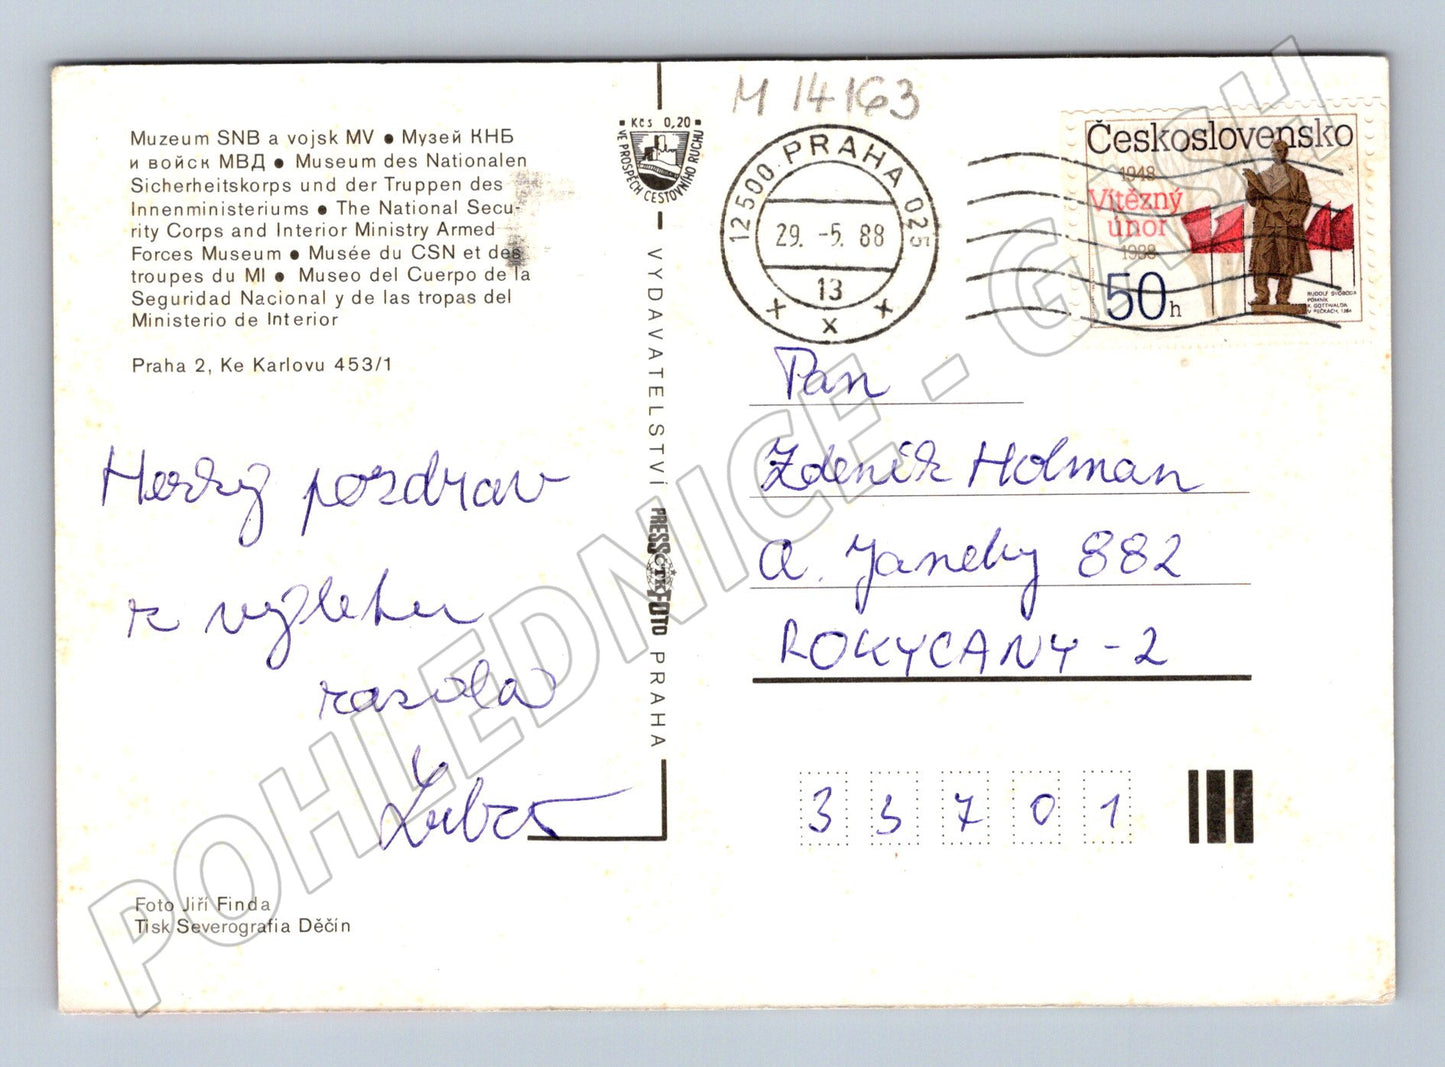 M 14163
Muzeum SNB a vojsk MV ● Музей КНБ
и войск МВД ● Museum des Nationalen
Sicherheitskorps und der Truppen des
Innenministeriums ● The National Secu-
rity Corps and Interior Ministry Armed
Forces Museum ● Musée du CSN et des
troupes du MI ● Museo del Cuerpo de la
Seguridad Nacional y de las tropas del
Ministerio de Interior
Praha 2, Ke Karlovu 453/1
Hezký pozdrav
z výletu
zasílá
Luboš
Foto Jiří Finda
Tisk Severografia Děčín
Kčs 0,20
VE PROSPĚCH CESTOVNÍHO RUCHU
VYDAVATELSTVÍ PRESSFOTO PRAHA
ČTK
125 00 PRAHA 025
29. -5. 88
13
x x x
Československo
1948
Vítězný
únor
1988
50h
RUDOLF SVOBODA
POMNÍK
K. GOTTWALDA
V PEČKÁCH, 1984
Pan
Zdeněk Holman
A. Janely 882
ROKYCANY - 2
33701
POHLEDNICE - GASH